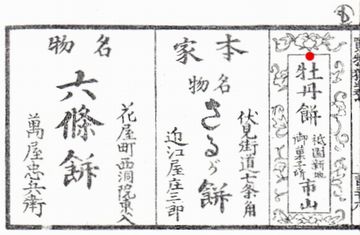 牡丹餅
祇園新地
御菓子所
市山
本家
名物
さるが餅
伏見街道七条角
近江屋庄三郎
名物
六條餅
花屋町西洞院東入
萬屋忠兵衛